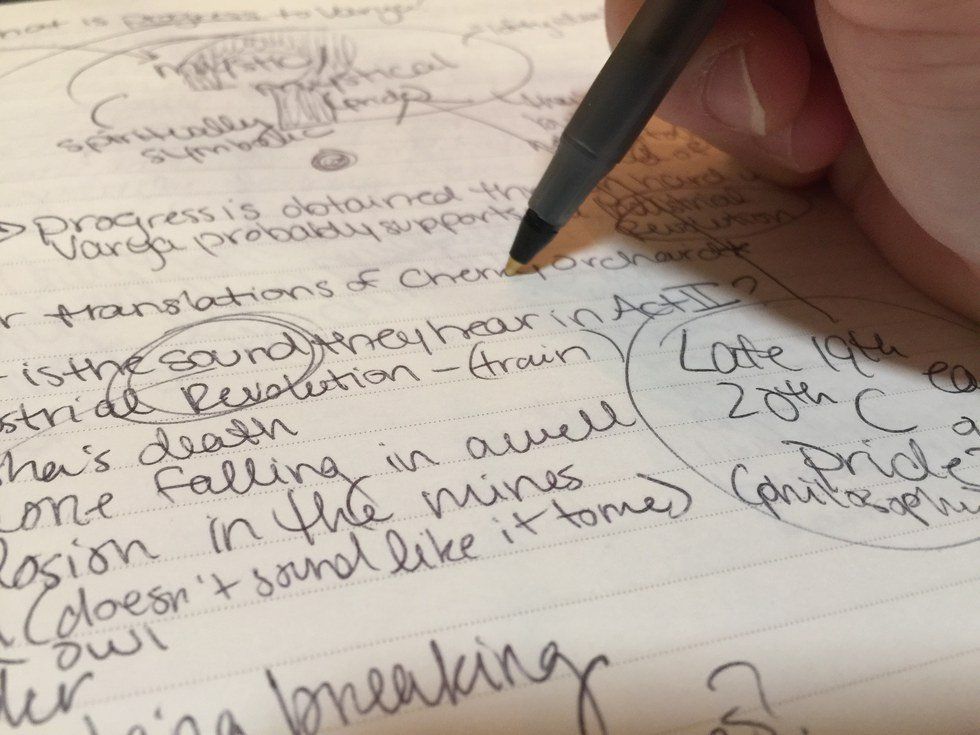 hat is progress to Varya?
mystic
skeptical
spiritually
symbolic
Progress is obtained
Varga probably supports
Industrial
Revolution
r translations of Cherry Orchard*
is the sound they hear in Act II?
strial Revolution - (train)
ha's death
one falling in a well
losion in the mines
(doesn't sound like it to me)
owl
der
being breaking
?
Late 19th ea
20th C
pride?
(philosophi